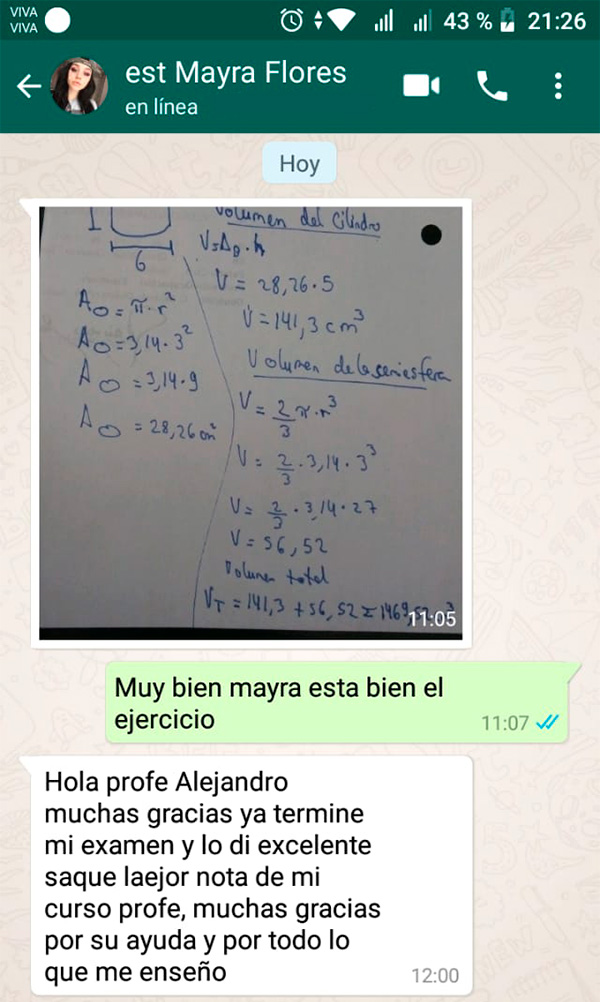 VIVA
VIVA
43 %
21:26
est Mayra Flores
en línea
Hoy
Volumen del Cilindro
6
V=A₀.h
V = 28,26.5
V=141,3 cm³
A₀=π.r²
A₀=3,14.3²
A₀=3,14.9
A₀=28,26 cm²
Volumen de la semiesfera
V=2/3 π.r³
V=2/3.3,14.3³
V=2/3.3,14.27
V=56,52
Volumen total
V_T=141,3+56,52=1469,52
11:05
Muy bien mayra esta bien el
ejercicio
11:07
Hola profe Alejandro
muchas gracias ya termine
mi examen y lo di excelente
saque laejor nota de mi
curso profe, muchas gracias
por su ayuda y por todo lo
que me enseño
12:00